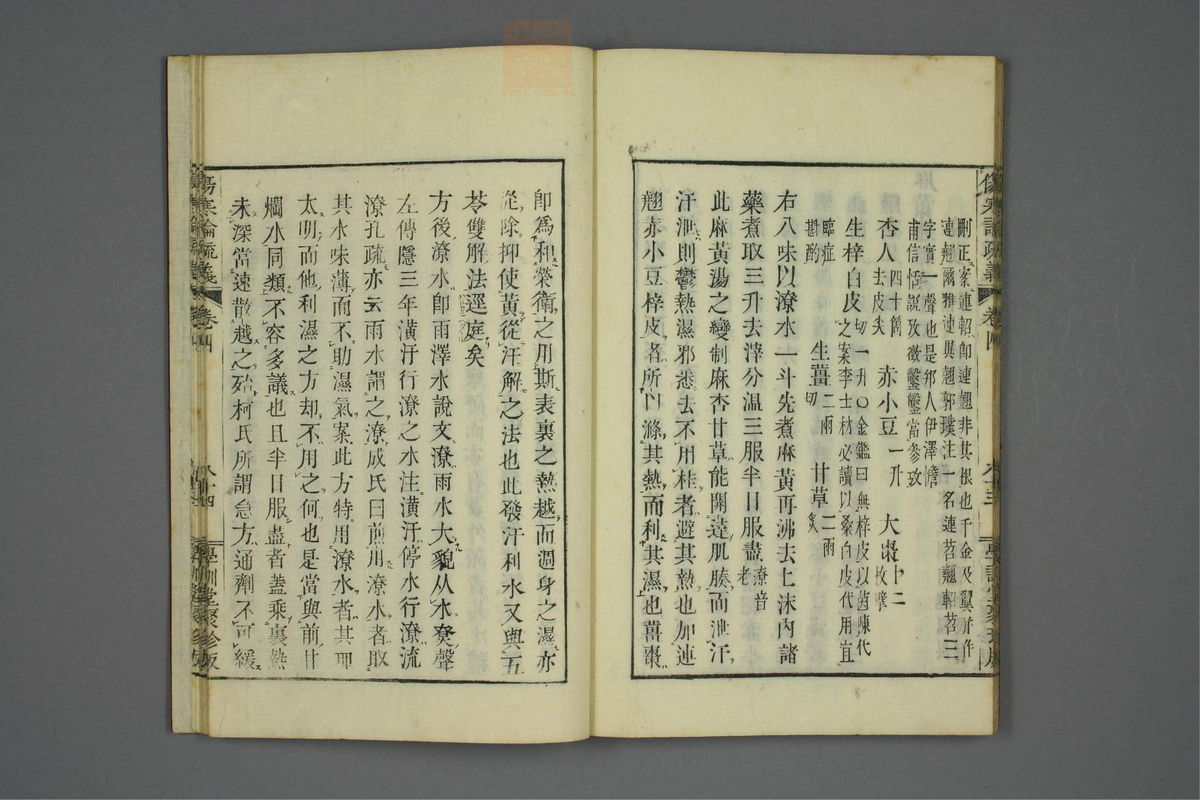 傷寒論疏義 卷四 八十三 學訓堂聚珍版
刪正案連軺卽連翹非其根也千金及翼並作
連翹爾雅連異翹郭璞注一名連苕翹軺苕三
字實一聲也是邦人伊澤憺
甫信恬說攷徵鑿鑿當參攷
杏人四十箇去皮尖 赤小豆一升 大棗十二枚擘
生梓白皮切一升○金鑑曰無梓皮以茵陳代
之案李士材必讀以桑白皮代用宜
臨症斟酌 生薑二兩切 甘草二兩炙
右八味以潦水一斗先煮麻黃再沸去上沫內諸
藥煮取三升去滓分溫三服半日服盡潦音老
此麻黃湯之變制麻杏甘草能開達肌腠而泄汗
汗泄則鬱熱濕邪悉去不用桂者避其熱也加連
翹赤小豆梓皮者所以滌其熱而利其濕也薑棗
卽爲和榮衛之用斯表裏之熱越而週身之濕亦
從除抑使黃從汗解之法也此發汗利水又與五
苓雙解法逕庭矣
方後潦水卽雨澤水說文潦雨水大貌从水尞聲
左傳隱三年潢汙行潦之水注潢汙停水行潦流
潦孔疏亦云雨水謂之潦成氏曰煎用潦水者取
其水味薄而不助濕氣案此方特用潦水者其理
太明而他利濕之方却不用之何也是當與前甘
爛水同類不容多議也且半日服盡者蓋乘裏熱
未深當速散越之殆柯氏所謂急方通劑不可緩
傷寒論疏義 卷四 八十四 學訓堂聚珍版